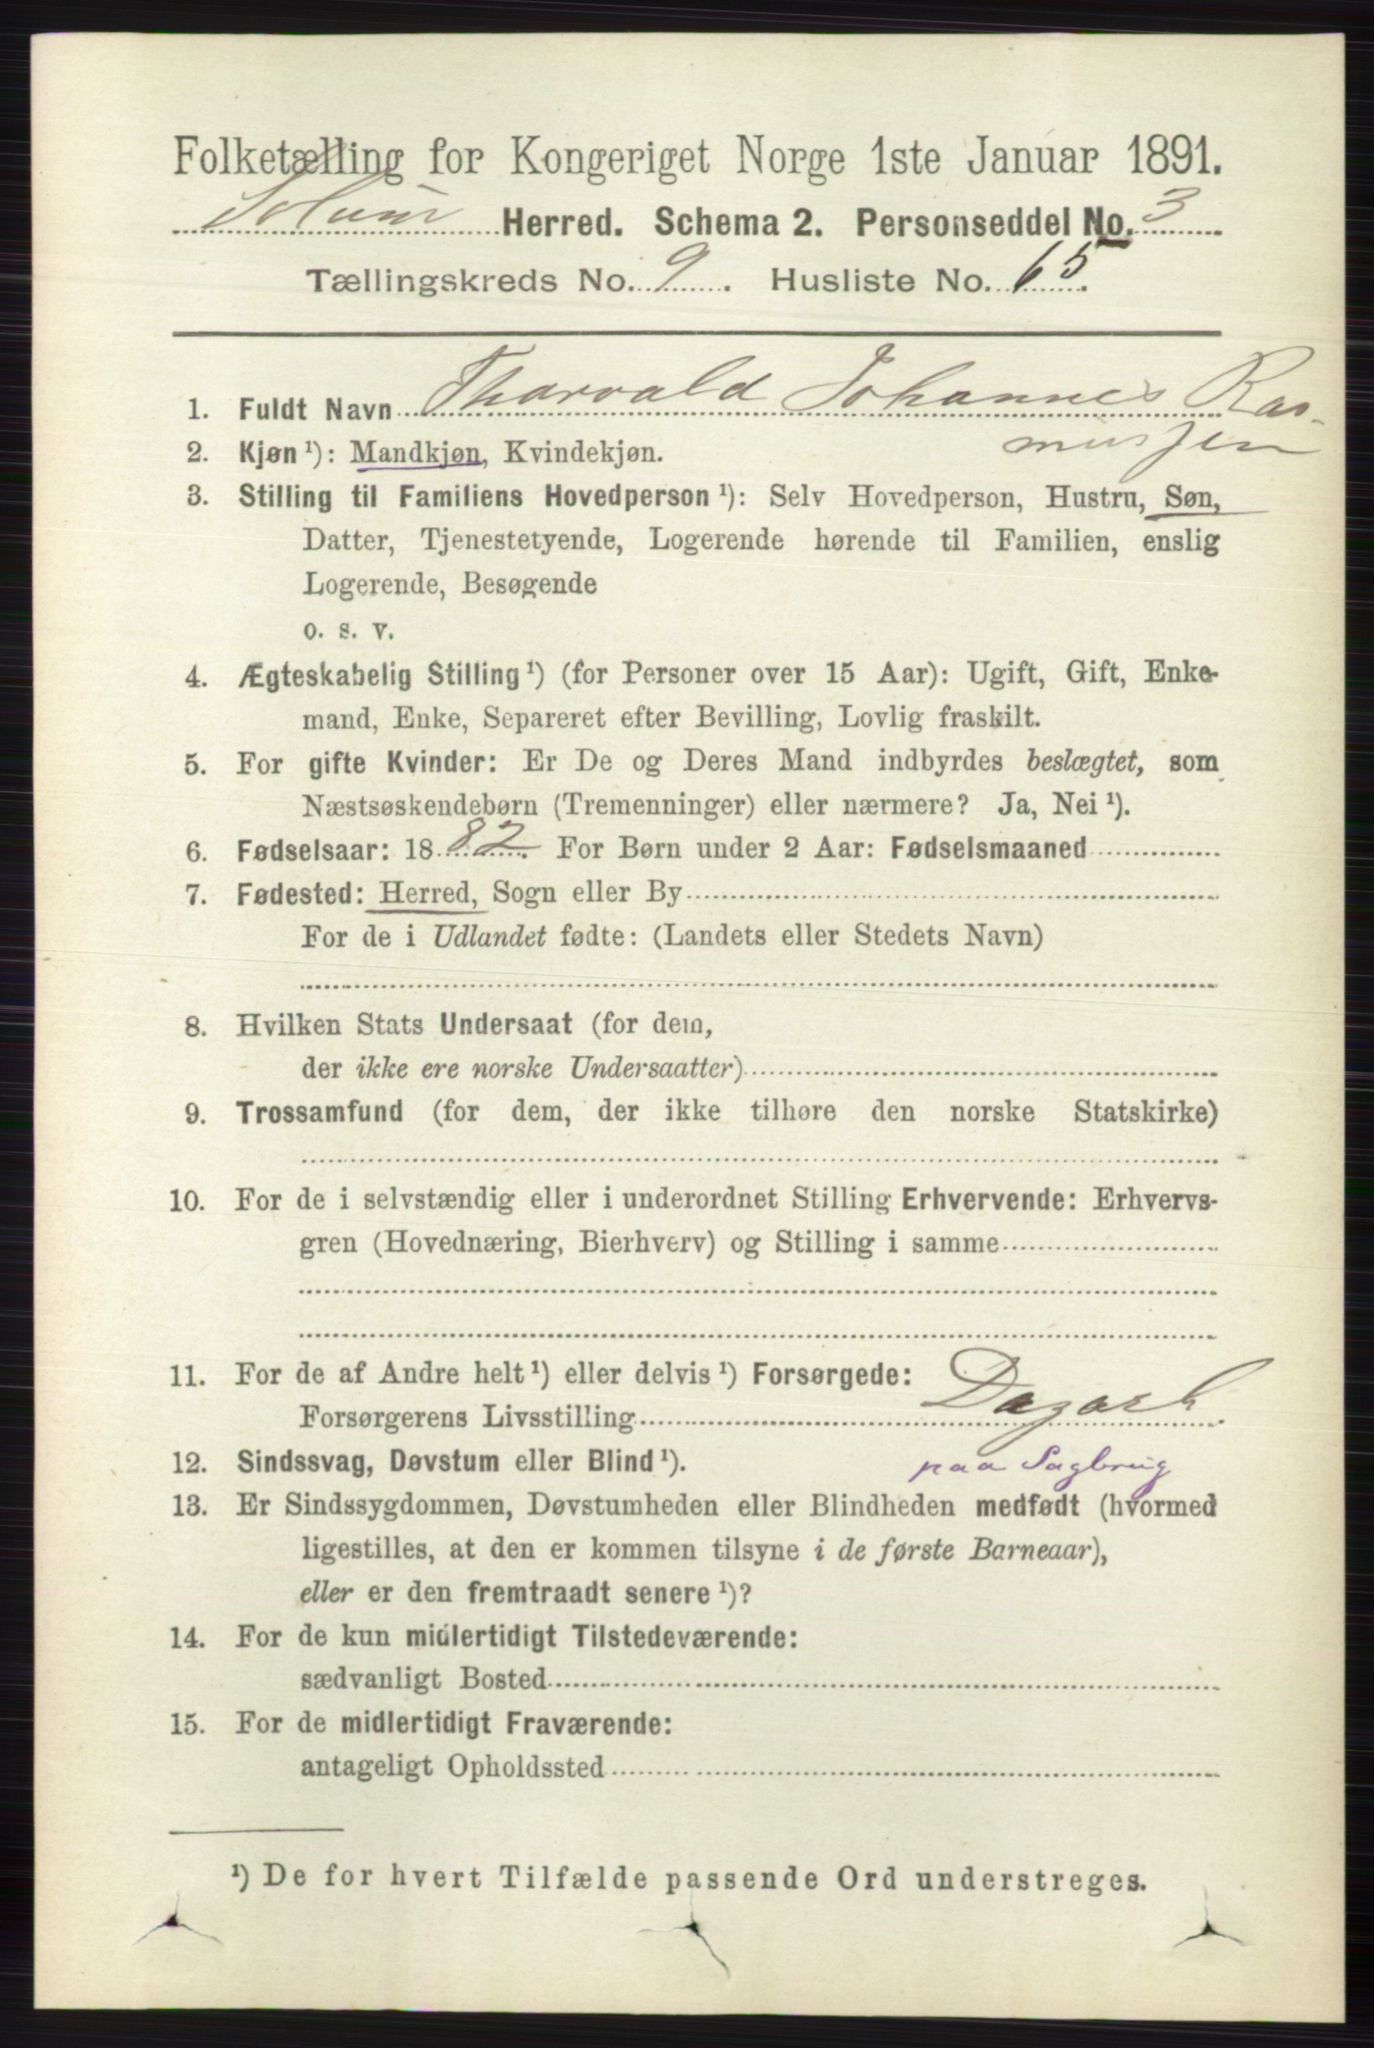 Folketælling for Kongeriget Norge 1ste Januar 1891.
Solum Herred. Schema 2. Personseddel No. 3
Tællingskreds No. 9. Husliste No. 65.
1. Fuldt Navn Tharvald Johannes Ras-
mussen
2. Kjøn ¹): Mandkjøn, Kvindekjøn.
3. Stilling til Familiens Hovedperson ¹): Selv Hovedperson, Hustru, Søn,
Datter, Tjenestetyende, Logerende hørende til Familien, enslig
Logerende, Besøgende
o. s. v.
4. Ægteskabelig Stilling ¹) (for Personer over 15 Aar): Ugift, Gift, Enke-
mand, Enke, Separeret efter Bevilling, Lovlig fraskilt.
5. For gifte Kvinder: Er De og Deres Mand indbyrdes beslægtet, som
Næstsøskendebørn (Tremenninger) eller nærmere? Ja, Nei ¹).
6. Fødselsaar: 1882. For Børn under 2 Aar: Fødselsmaaned
7. Fødested: Herred, Sogn eller By
For de i Udlandet fødte: (Landets eller Stedets Navn)
8. Hvilken Stats Undersaat (for dem,
der ikke ere norske Undersaatter)
9. Trossamfund (for dem, der ikke tilhøre den norske Statskirke)
10. For de i selvstændig eller i underordnet Stilling Erhvervende: Erhvervs-
gren (Hovednæring, Bierhverv) og Stilling i samme
11. For de af Andre helt ¹) eller delvis ¹) Forsørgede:
Forsørgerens Livsstilling Dagarb.
12. Sindssvag, Døvstum eller Blind ¹). paa Sagbrug
13. Er Sindssygdommen, Døvstumheden eller Blindheden medfødt (hvormed
ligestilles, at den er kommen tilsyne i de første Barneaar),
eller er den fremtraadt senere ¹)?
14. For de kun midlertidigt Tilstedeværende:
sædvanligt Bosted
15. For de midlertidigt Fraværende:
antageligt Opholdssted
¹) De for hvert Tilfælde passende Ord understreges.